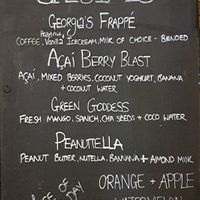 SPECIALS
GEORGIA'S FRAPPÉ
COFFEE, VANILLA ICECREAM, MILK OF CHOICE - BLENDED
AÇAÍ BERRY BLAST
AÇAÍ, MIXED BERRIES, COCONUT YOGHURT, BANANA
+ COCONUT WATER
GREEN GODDESS
FRESH MANGO, SPINACH, CHIA SEEDS + COCO WATER
PEANUTELLA
PEANUT BUTTER, NUTELLA, BANANA + ALMOND MILK
JUICE OF
DAY
ORANGE + APPLE
WATERMELON